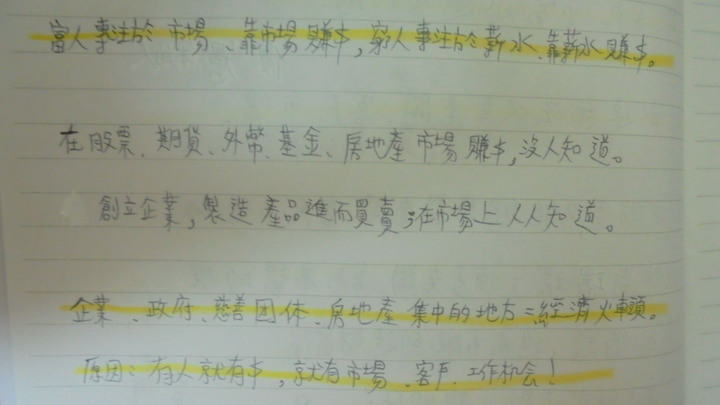 富人專注於市場、靠市場賺$,窮人專注於薪水、靠薪水賺$。
在股票、期貨、外幣、基金、房地產市場賺$,沒人知道。
創立企業,製造產品進而買賣;在市場上人人知道。
企業、政府、慈善团体、房地產集中的地方=經濟火車頭。
原因:有人就有$,就有市場、客戶、工作机会!